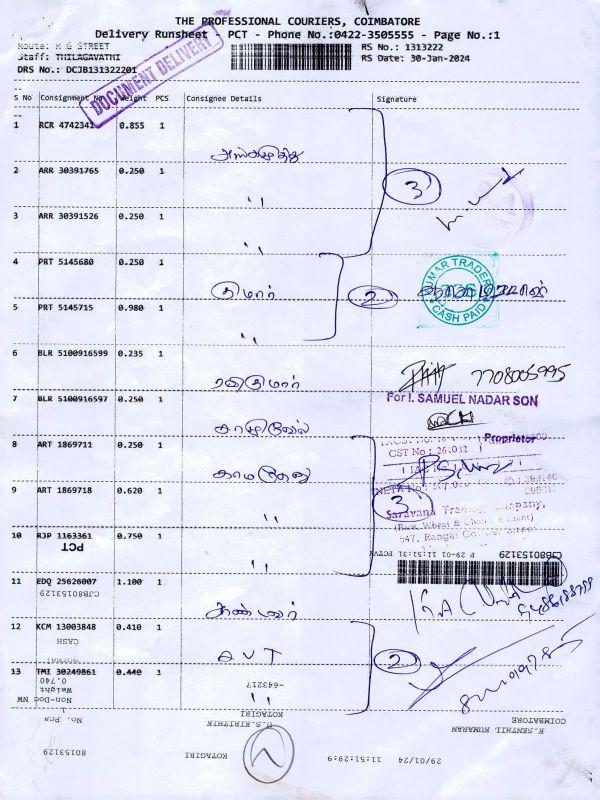 THE PROFESSIONAL COURIERS, COIMBATORE
Delivery Runsheet - PCT - Phone No.:0422-3505555 - Page No.:1
Route: M G STREET
Staff: THILAGAVATHI
DRS No.: DCJB131322201
RS No.: 1313222
RS Date: 30-Jan-2024
DOCUMENT DELIVERY
S No Consignment No Weight PCS Consignee Details Signature
1 RCR 4742341 0.855 1
2 ARR 30391765 0.250 1 ''
3
3 ARR 30391526 0.250 1 ''
4 PRT 5145680 0.250 1 குமார் 2
MAR TRADER
CASH PAID
5 PRT 5145715 0.980 1 ''
6 BLR 5100916599 0.235 1 ரவிகுமார்
7708005995
7 BLR 5100916597 0.250 1
For I. SAMUEL NADAR SON
Proprietor
8 ART 1869711 0.250 1 காமதேனு
CST No : 26
9 ART 1869718 0.620 1 ''
3
Saravana
547, Rangai
10 RJP 1163361 0.750 1 ''
PCT
CJB80153129
P 29-01 11:51:31
11 EDQ 25626007 1.100 1 கண்ணர்
CJB80153129
12 KCM 13003848 0.410 1 AVT
CASH
2
13 TMI 30249861 0.440 1 ''
0.740
Weight
Non-Doc NW
-643217
KOTAGIRI
U.S.KIRITHIK
No. Pcs
COIMBATORE
K.SENTHIL KUMARAN
80153129
KOTAGIRI
11:51:29:9
29/01/24